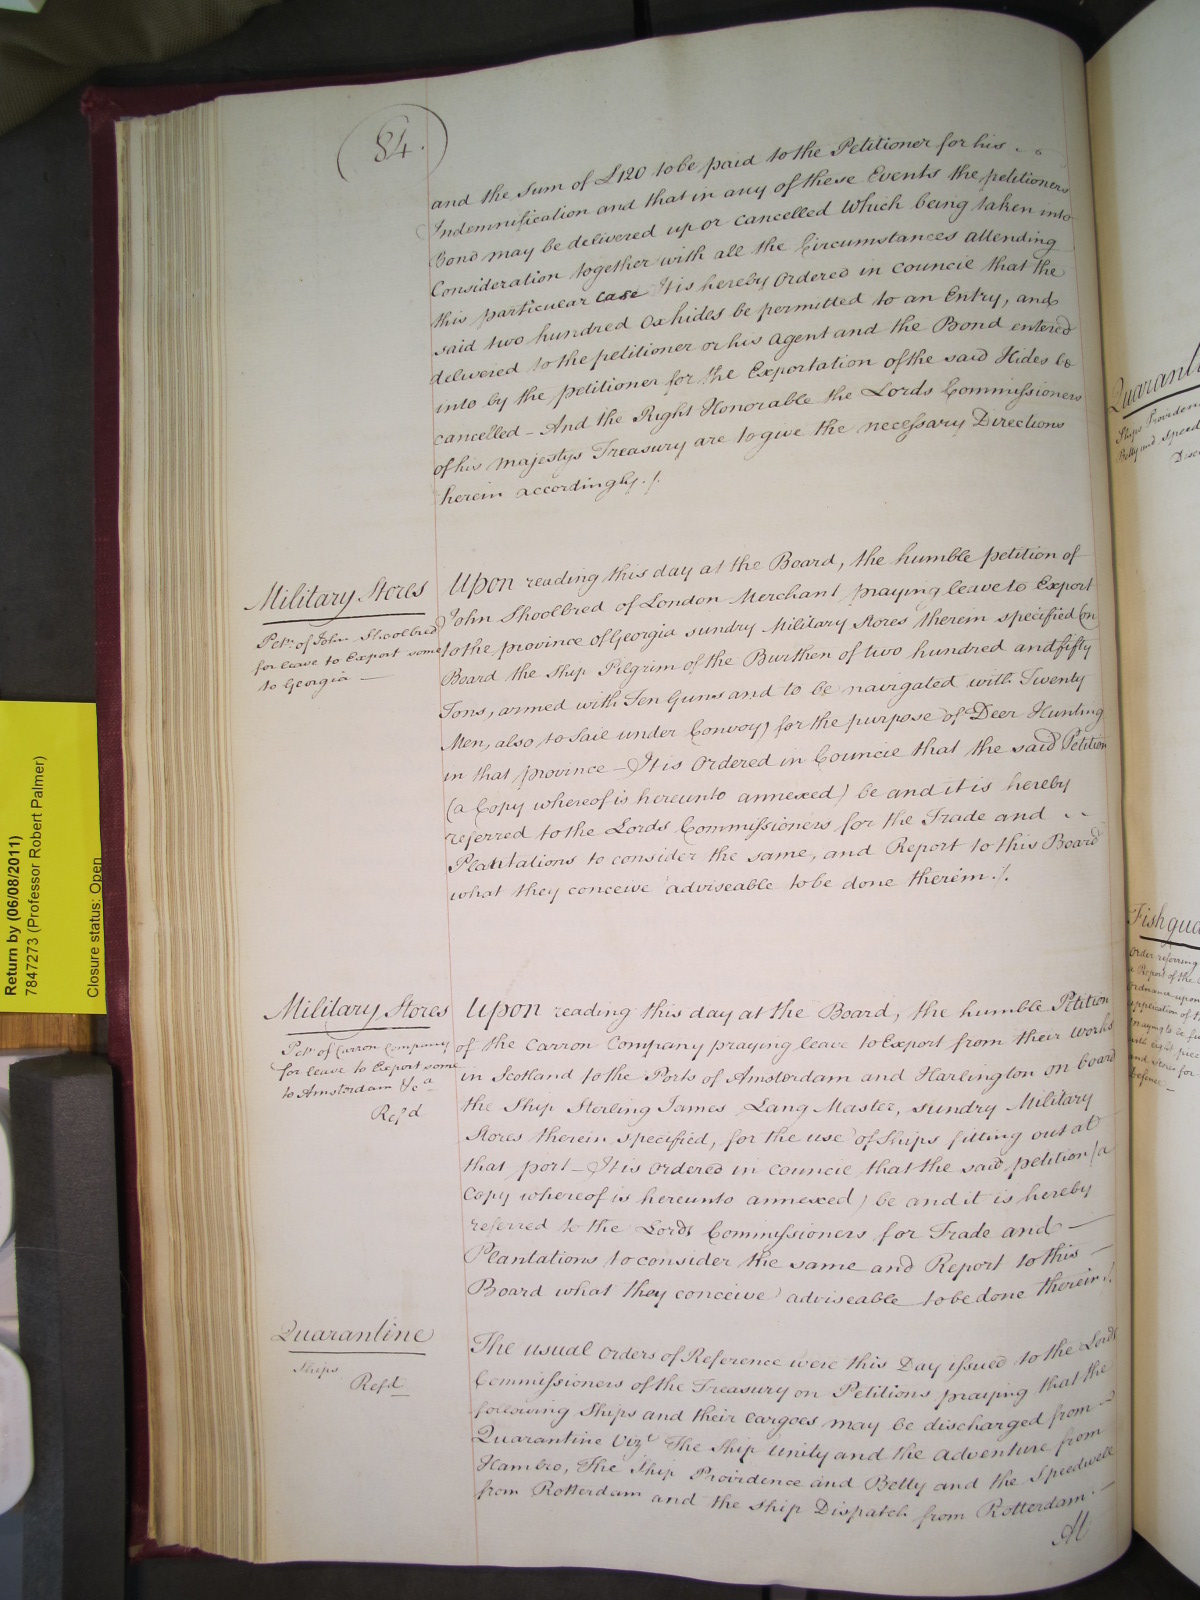 84.
and the Sum of £120 to be paid to the Petitioner for his
Indemnification and that in any of these Events the petitioners
Bond may be delivered up or cancelled Which being taken into
Consideration together with all the Circumstances attending
this particular case It is hereby Ordered in Council that the
said two hundred Oxhides be permitted to an Entry, and
delivered to the petitioner or his Agent and the Bond entered
into by the petitioner for the Exportation of the said Hides be
cancelled - And the Right Honorable the Lords Commissioners
of his Majestys Treasury are to give the necessary Directions
herein accordingly ./.
Military Stores
Petn. of John Shoolbred
for leave to Export some
to Georgia —
Upon reading this day at the Board, the humble petition of
John Shoolbred of London Merchant praying leave to Export
to the province of Georgia sundry Military Stores therein specified (on
Board the Ship Pilgrim of the Burthen of two hundred and fifty
Tons, armed with Ten Guns and to be navigated with Twenty
Men, also to Sail under Convoy) for the purpose of Deer Hunting
in that province - It is Ordered in Council that the said Petition
(a Copy whereof is hereunto annexed) be and it is hereby
referred to the Lords Commissioners for the Trade and
Plantations to consider the same, and Report to this Board
what they conceive adviseable to be done therein ./.
Military Stores
Petn. of Carron Company
for leave to Export some
to Amsterdam &ca
Refd
Upon reading this day at the Board, the humble Petition
of the Carron Company praying leave to Export from their Works
in Scotland to the Ports of Amsterdam and Harlington on board
the Ship Sterling James Lang Master, sundry Military
Stores therein specified, for the use of Ships fitting out at
that port - It is Ordered in Council that the said petition (a
Copy whereof is hereunto annexed) be and it is hereby
referred to the Lords Commissioners for Trade and —
Plantations to consider the same and Report to this —
Board what they conceive adviseable to be done therein ./.
Quarantine
Ships
Refd
The usual Orders of Reference were this Day issued to the Lords
Commissioners of the Treasury on Petitions praying that the
following Ships and their cargoes may be discharged from
Quarantine Vizt The Ship Unity and the Adventure from
Hambro, The Ship Providence and Betty and the Speedwell
from Rotterdam and the Ship Dispatch from Rotterdam. —
At
Return by (06/08/2011)
7847273 (Professor Robert Palmer)
Closure status: Open
Ships Providence
Betty and Speed
Order referring
a Report of the
Ordnance upon
application of
praying to be
and Stores for